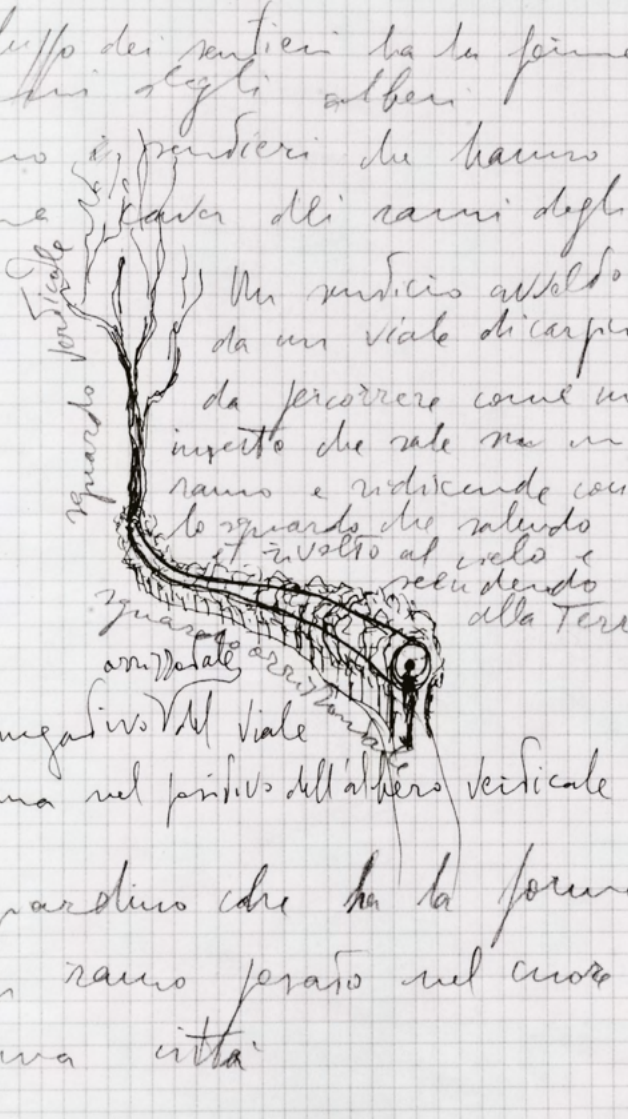 dei sentieri ha la forma
degli alberi
sentieri che hanno
cava dei rami degli
Un sentiero avvolto
da un viale di carpini
da percorrere come un
insetto che sale su un
ramo e ridiscende con
lo sguardo che salendo
è rivolto al cielo e
scendendo
alla Terra
sguardo verticale
sguardo orizzontale
orizzontale
negativo del viale
nel positivo dell'albero verticale
giardino che ha la forma
ramo posato nel cuore
una città